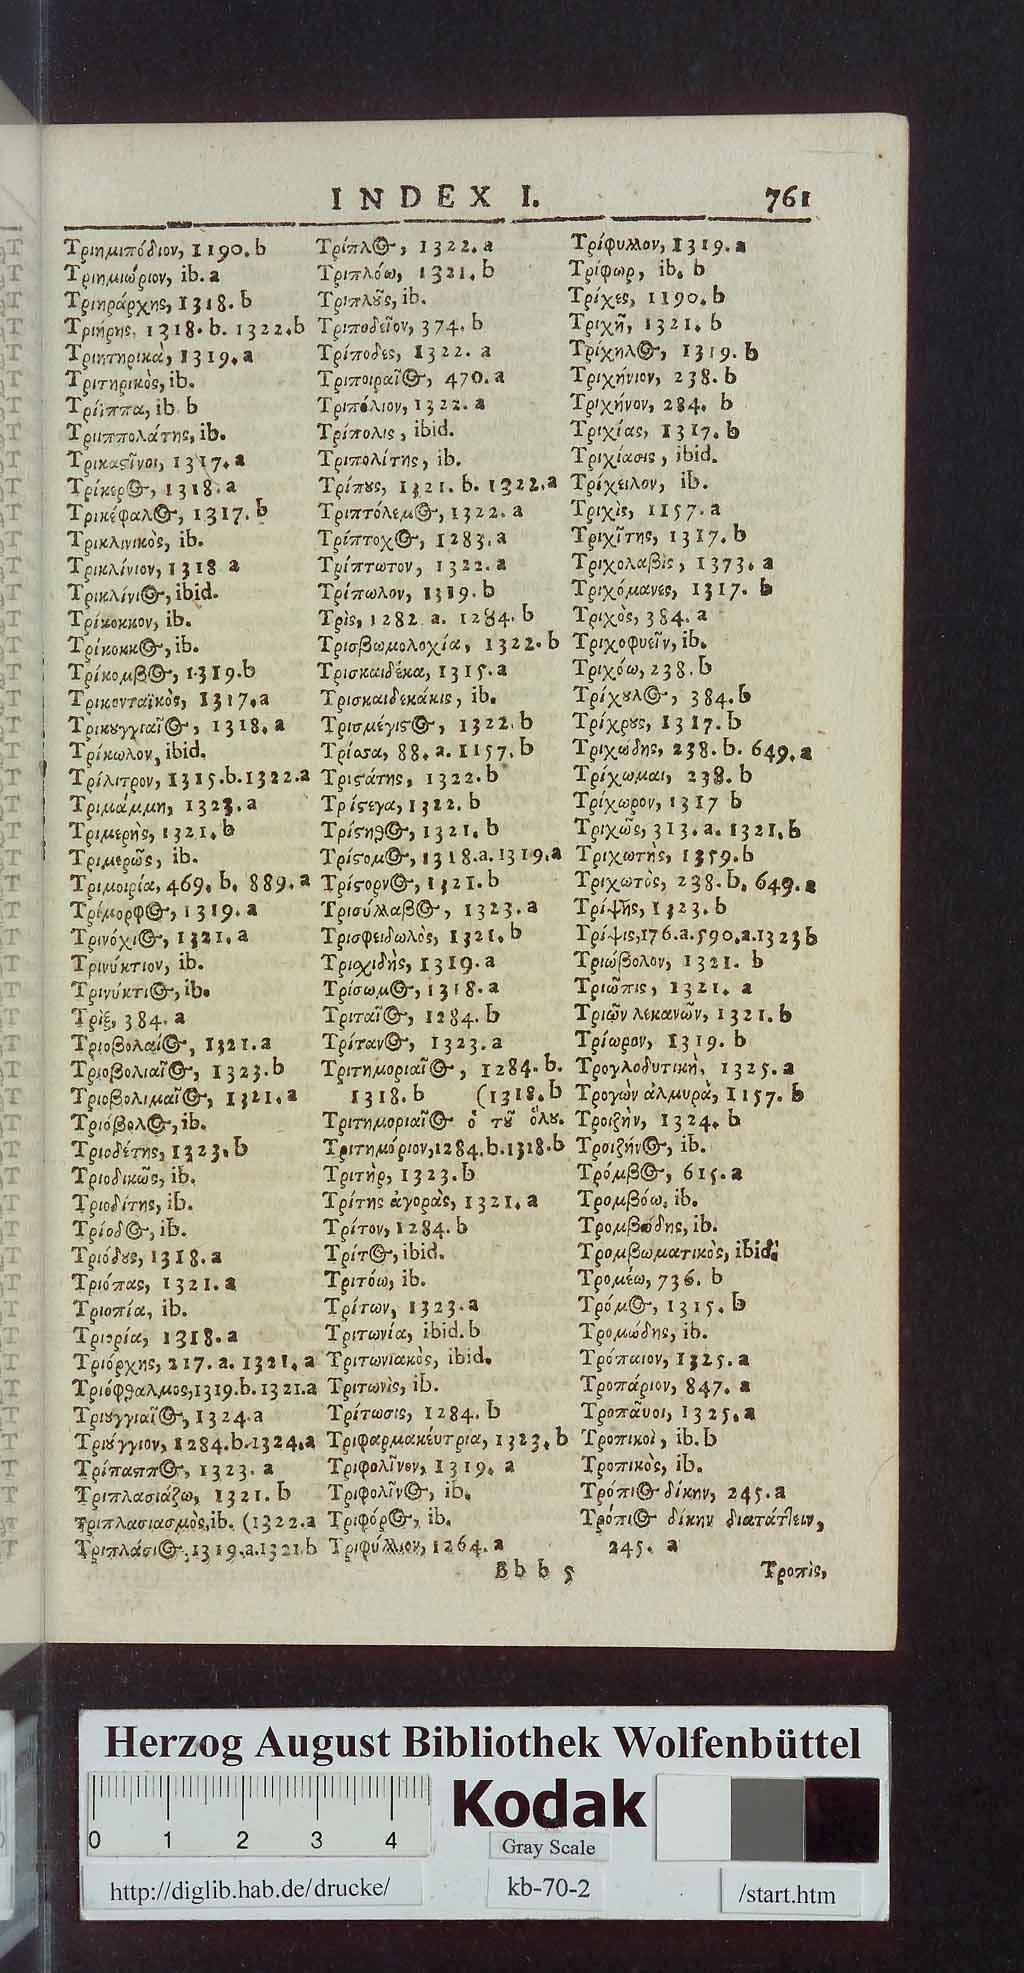 INDEX I. 761
Τριημιπόδιον, 1190. b
Τριημιώριον, ib. a
Τριηράρχης, 1318. b
Τριήρης, 1318. b. 1322. b
Τριητηρικὰ, 1319. a
Τριτηρικὸς, ib.
Τρίϊππα, ib. b
Τριιππολάτης, ib.
Τρικαςῖνοι, 1317. a
Τρίκερος, 1318. a
Τρικέφαλος, 1317. b
Τρικλινικὸς, ib.
Τρικλίνιον, 1318 a
Τρικλίνιος, ibid.
Τρίκοκκον, ib.
Τρίκοκκος, ib.
Τρίκομβος, 1319. b
Τρικονταϊκὸς, 1317. a
Τρικȣγγιαῖος, 1318. a
Τρίκωλον, ibid.
Τρίλιτρον, 1315. b. 1322. a
Τριμάμμη, 1323. a
Τριμερὴς, 1321. b
Τριμερῶς, ib.
Τριμοιρία, 469. b. 889. a
Τρίμορφος, 1319. a
Τρινόχιος, 1321. a
Τρινύκτιον, ib.
Τρινύκτιος, ib.
Τρὶξ, 384. a
Τριοβολαίος, 1321. a
Τριοβολιαῖος, 1323. b
Τριοβολιμαῖος, 1321. a
Τριόβολος, ib.
Τριοδέτης, 1323. b
Τριοδικῶς, ib.
Τριοδίτης, ib.
Τρίοδος, ib.
Τριόδȣς, 1318. a
Τριόπας, 1321. a
Τριοπία, ib.
Τριορία, 1318. a
Τριόρχης, 217. a. 1321. a
Τριόφθαλμος, 1319. b. 1321. a
Τριȣγγιαῖος, 1324. a
Τριȣ́γγιον, 1284. b. 1324. a
Τρίπαππος, 1323. a
Τριπλασιάζω, 1321. b
Τριπλασιασμὸς, ib. (1322. a
Τριπλάσιος, 1319. a. 1321. b
Τρίπλος, 1322. a
Τριπλόω, 1321. b
Τριπλȣ͂ς, ib.
Τριποδεῖον, 374. b
Τρίποδες, 1322. a
Τριποιραῖος, 470. a
Τριπόλιον, 1322. a
Τρίπολις, ibid.
Τριπολίτης, ib.
Τρίπȣς, 1321. b. 1322. a
Τριπτόλεμος, 1322. a
Τρίπτοχος, 1283. a
Τρίπτωτον, 1322. a
Τρίπωλον, 1319. b
Τρὶς, 1282 a. 1284. b
Τρισβωμολοχία, 1322. b
Τρισκαιδέκα, 1315. a
Τρισκαιδεκάκις, ib.
Τρισμέγιςος, 1322. b
Τρίσσα, 88. a. 1157. b
Τριςάτης, 1322. b
Τρίςεγα, 1322. b
Τρίςηθος, 1321. b
Τρίςομος, 1318. a. 1319. a
Τρίςορνος, 1321. b
Τρισύλλαβος, 1323. a
Τρισφειδωλὸς, 1321. b
Τρισχιδὴς, 1319. a
Τρίσωμος, 1318. a
Τριταῖος, 1284. b
Τρίτανος, 1323. a
Τριτημοριαῖος, 1284. b.
1318. b (1318. b
Τριτημοριαῖος ὁ τȣ͂ ὅλȣ.
Τριτημόριον, 1284. b. 1318. b
Τριτὴρ, 1323. b
Τρίτης ἀγορᾶς, 1321. a
Τρίτον, 1284. b
Τρίτος, ibid.
Τριτόω, ib.
Τρίτων, 1323. a
Τριτωνία, ibid. b
Τριτωνιακὸς, ibid.
Τριτωνὶς, ib.
Τρίτωσις, 1284. b
Τριφαρμακεύτρια, 1323. b
Τριφολῖνον, 1319. a
Τριφολῖνος, ib.
Τριφόρος, ib.
Τριφύλλιον, 1264. a
Τρίφυλλον, 1319. a
Τρίφωρ, ib. b
Τρίχες, 1190. b
Τριχῆ, 1321. b
Τρίχηλος, 1319. b
Τριχήνιον, 238. b
Τριχήνον, 284. b
Τριχίας, 1317. b
Τριχίασις, ibid.
Τρίχειλον, ib.
Τριχὶς, 1157. a
Τριχῖτης, 1317. b
Τριχολαβὶς, 1373. a
Τριχόμανες, 1317. b
Τριχὸς, 384. a
Τριχοφυεῖν, ib.
Τριχόω, 238. b
Τρίχȣλος, 384. b
Τρίχρȣς, 1317. b
Τριχώδης, 238. b. 649. a
Τρίχωμαι, 238. b
Τρίχωρον, 1317 b
Τριχῶς, 313. a. 1321. b
Τριχωτὴς, 1359. b
Τριχωτὸς, 238. b. 649. a
Τρίψῃς, 1323. b
Τρίψις, 176. a. 590. a. 1323 b
Τριώβολον, 1321. b
Τριῶπις, 1321. a
Τριῶν λεκανῶν, 1321. b
Τρίωρον, 1319. b
Τρογλοδυτικὴ, 1325. a
Τρογὼν ἁλμυρὰ, 1157. b
Τροιζὴν, 1324. b
Τροιζήνος, ib.
Τρόμβος, 615. a
Τρομβόω, ib.
Τρομβώδης, ib.
Τρομβωματικὸς, ibid.
Τρομέω, 736. b
Τρόμος, 1315. b
Τρομώδης, ib.
Τρόπαιον, 1325. a
Τροπάριον, 847. a
Τροπᾶυοι, 1325. a
Τροπικοὶ, ib. b
Τροπικὸς, ib.
Τρόπιος δίκην, 245. a
Τρόπιος δίκην διατάττειν,
245. a
Bbb 5 Τροπὶς,
Herzog August Bibliothek Wolfenbüttel
0 1 2 3 4
Kodak
Gray Scale
http://diglib.hab.de/drucke/
kb-70-2
/start.htm